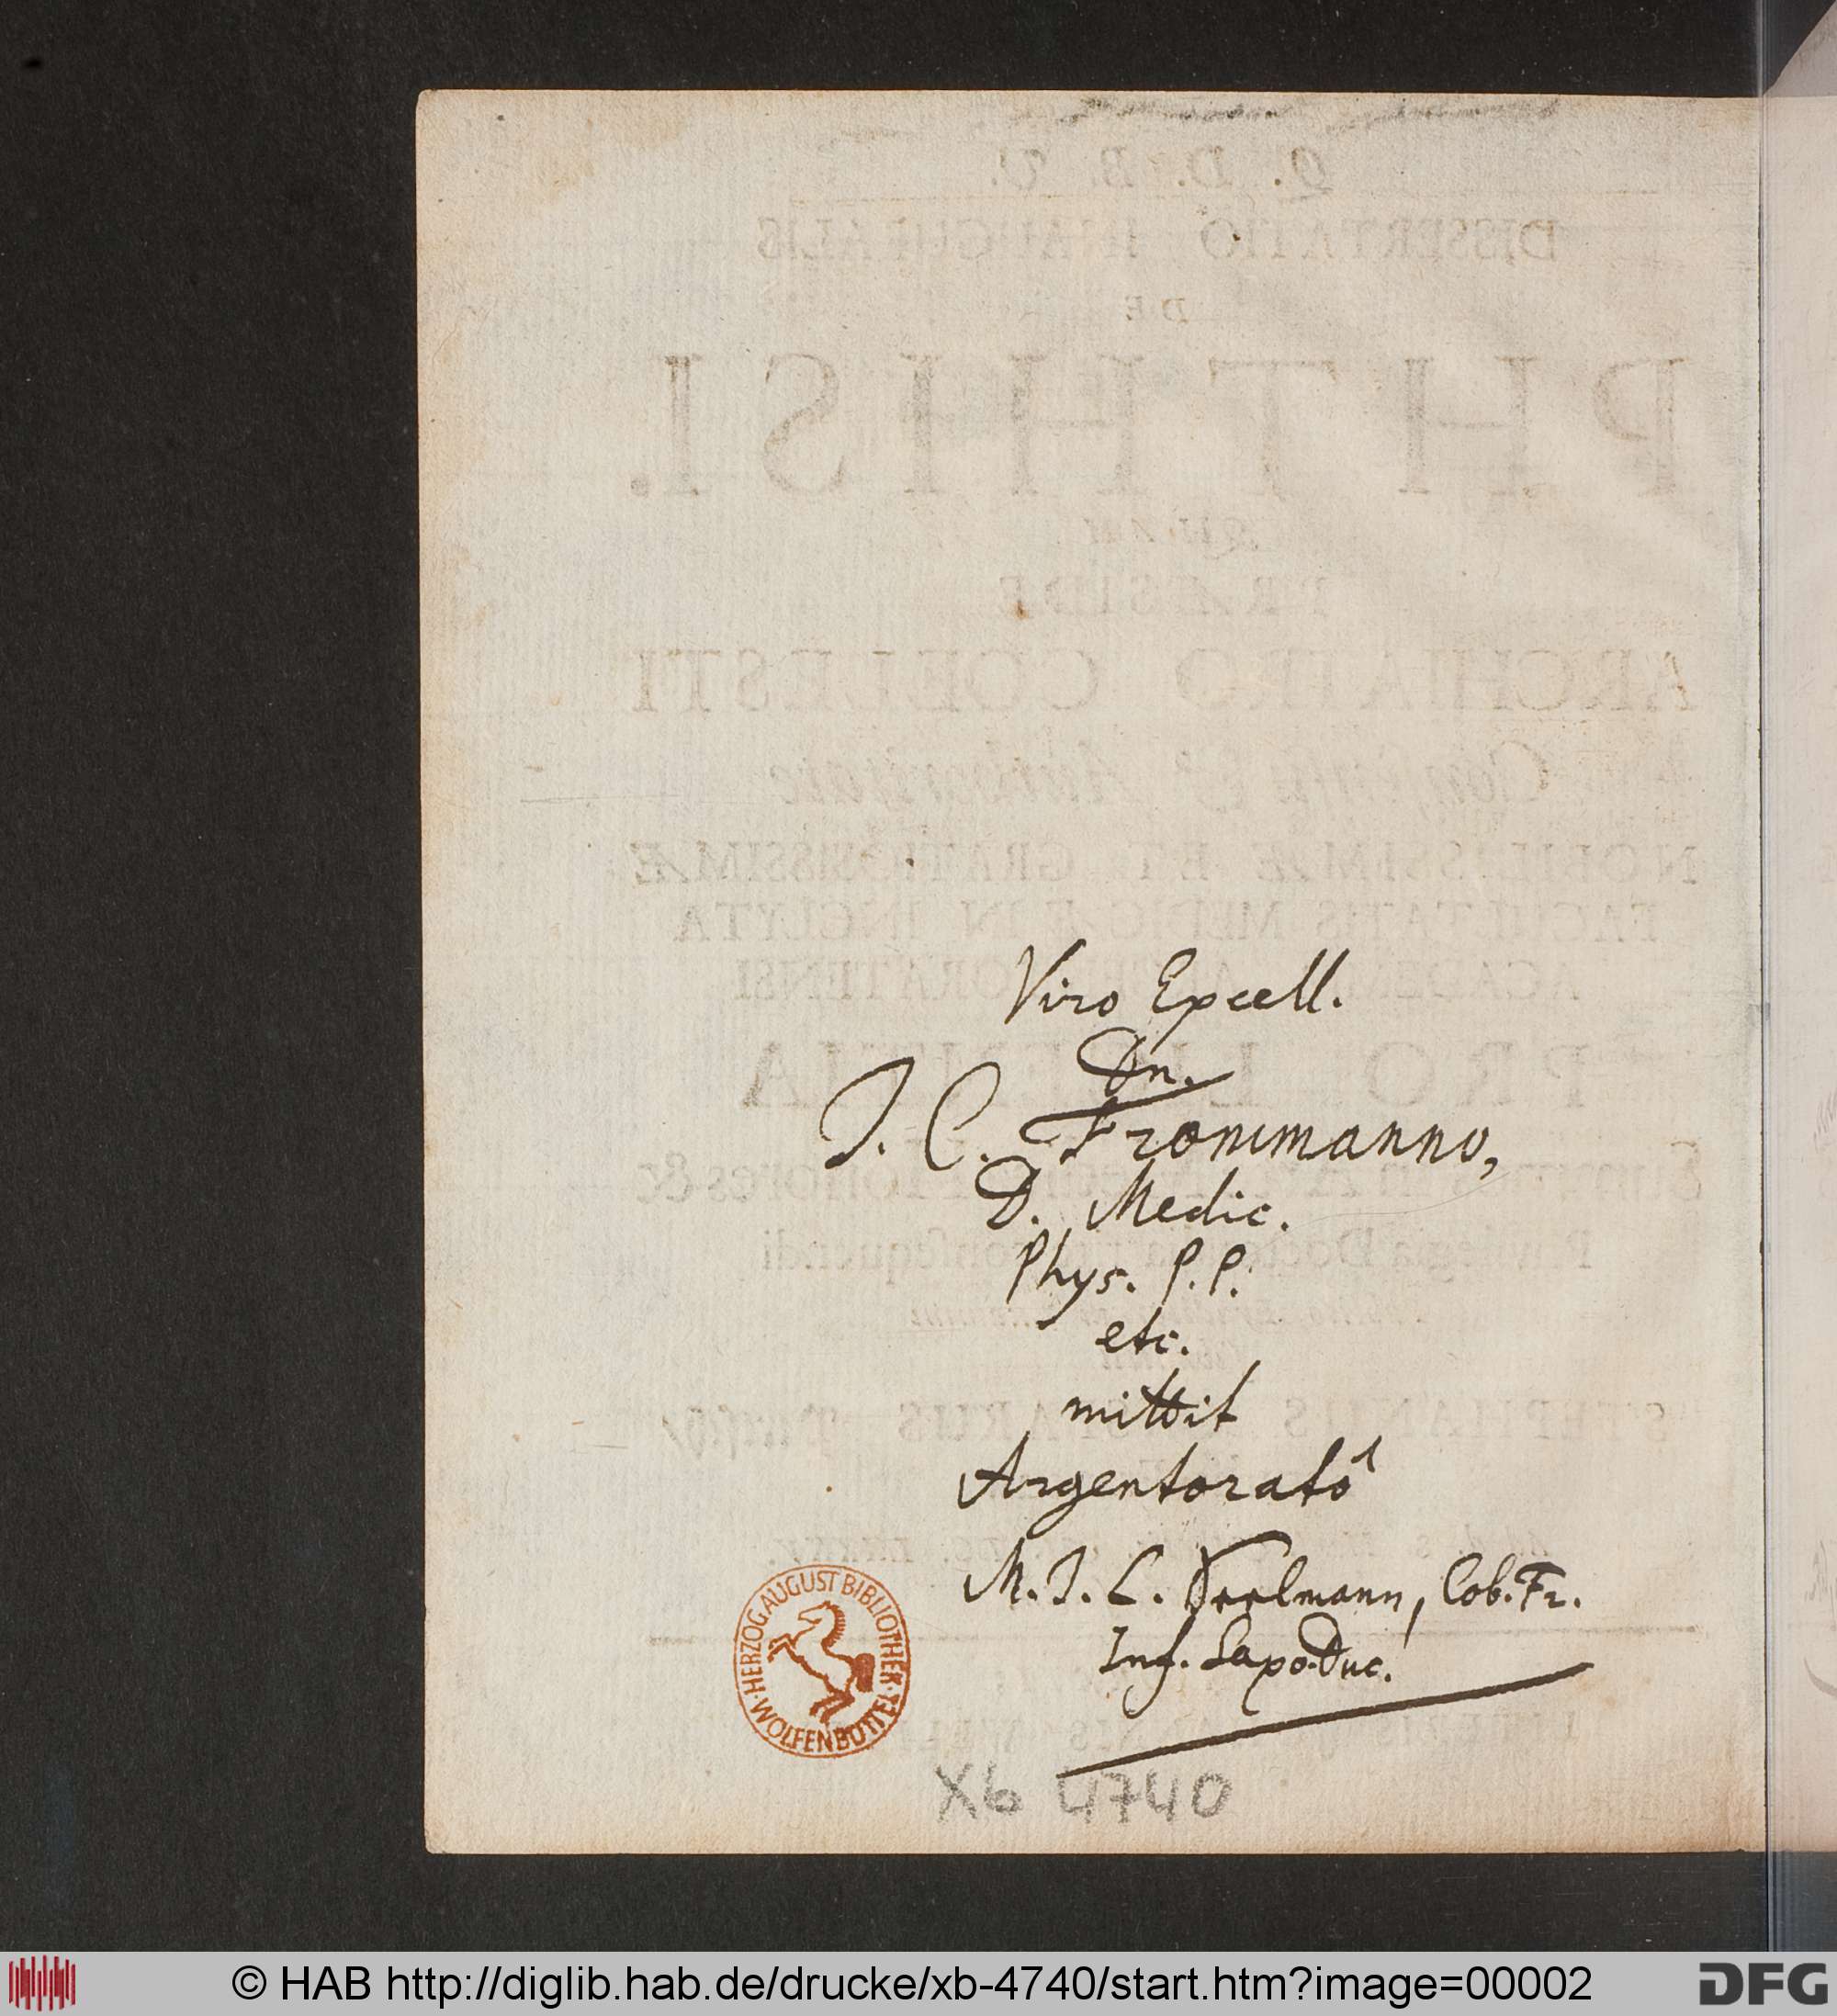 Viro Excell.
Dn.
J. C. Frommanno,
D. Medic.
Phys. P.P.
etc.
mittit
Argentorato
M. J. L. Cob. Fr.
Inf. Saxo-Duc.
HERZOG AUGUST BIBLIOTHEK · WOLFENBÜTTEL ·
Xb 4740
© HAB http://diglib.hab.de/drucke/xb-4740/start.htm?image=00002
DFG